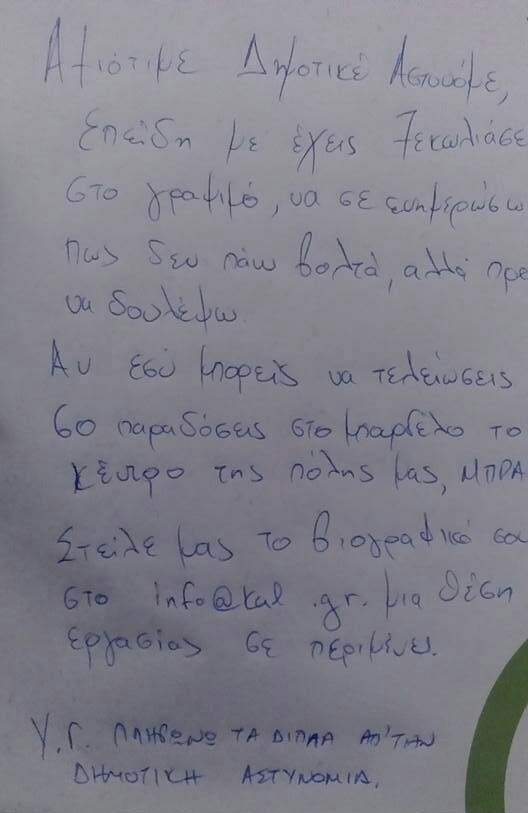 Αξιότιμε Δημοτικέ Αστυνόμε,
Επειδη με έχεις ξεκωλιάσε
στο γραψιμό, να σε ενημερώσω
πως δεν πάω βολτά, αλλά πρε
να δουλέψω.
Αν εσύ μπορείς να τελειώσεις
60 παραδόσεις στο μπαρδέλο το
κέντρο της πόλης μας, ΜΠΡΑ
Στείλε μας το βιογραφικό σου
στο info@kal .gr. μια θέση
εργασίας σε περιμένει.
Υ.Γ. ΠΛΗΡΩΝΩ ΤΑ ΔΙΠΛΑ ΑΠ'ΤΗΝ
ΔΗΜΟΤΙΚΗ ΑΣΤΥΝΟΜΙΑ.